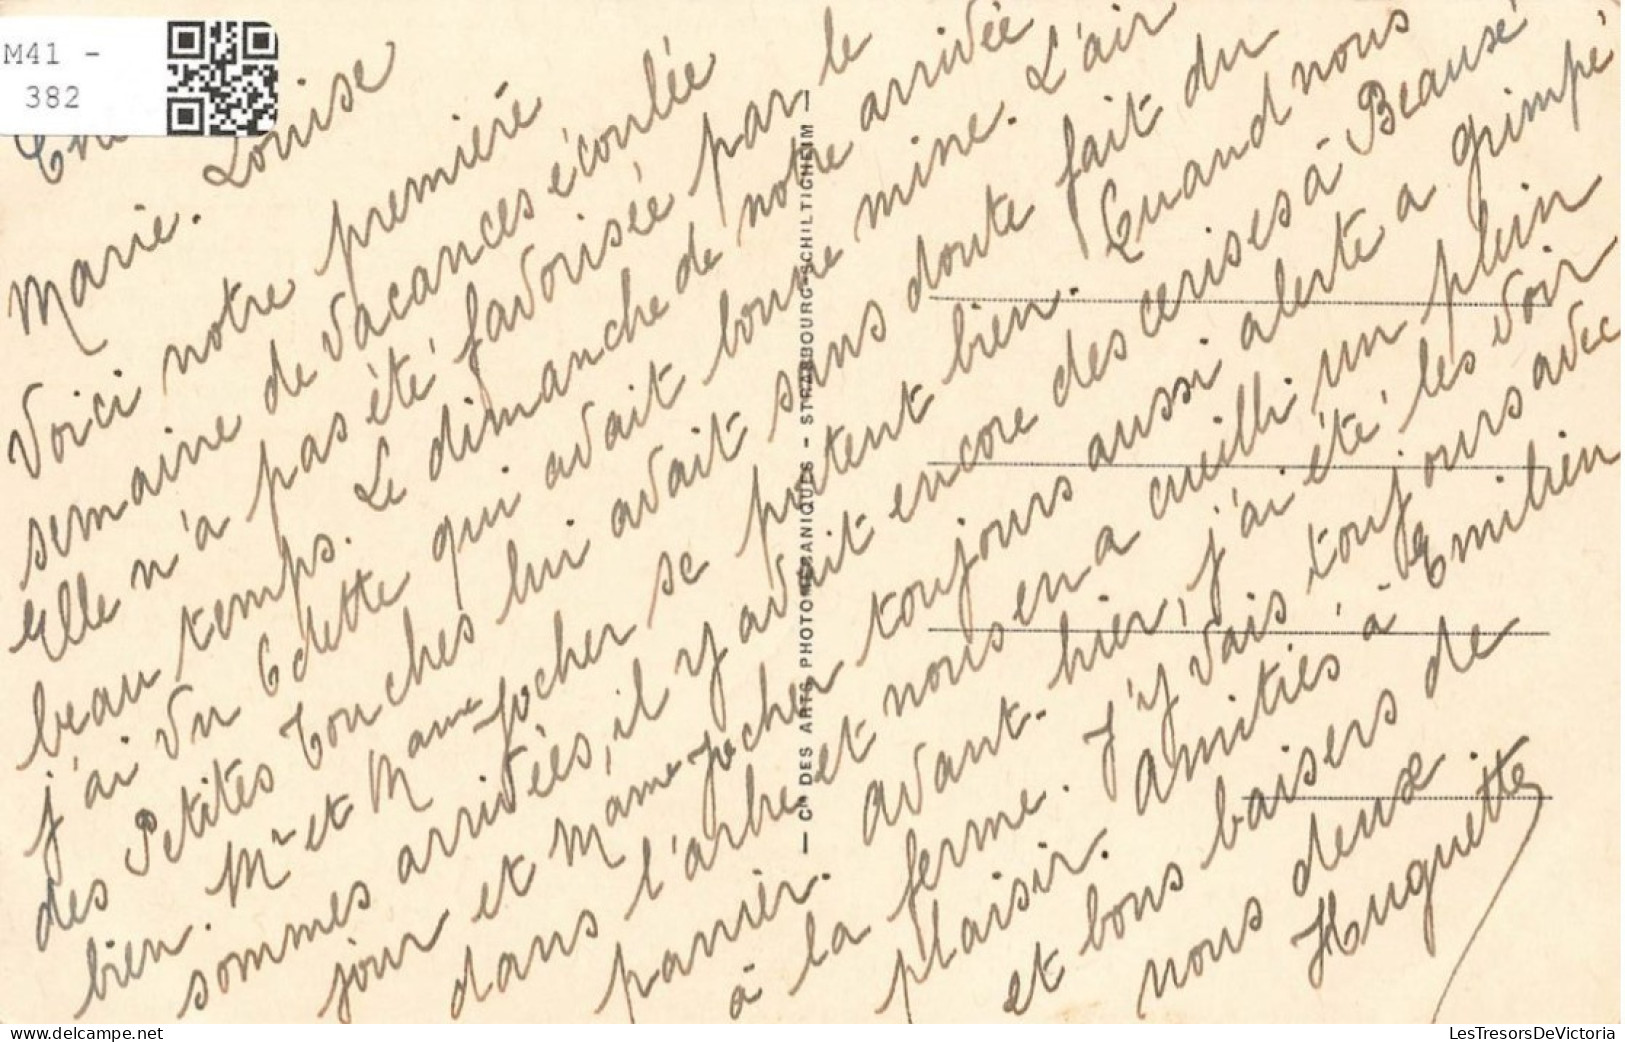 M41 -
382
Marie. Louise
Voici notre première
semaine de vacances écoulée
Elle n'a pas été favorisée par le
beau temps. Le dimanche de notre arrivée
j'ai vu Odette qui avait bonne mine. L'air
des Petites Couches lui avait sans doute fait du
bien. Mr et Mame Jocher se portent bien. Quand nous
sommes arrivées, il y avait encore des cerises à Beausé
jour et Mame Jocher toujours aussi alerte a grimpé
dans l'arbre et nous en a cueilli un plein
panier. Avant-hier, j'ai été les voir
à la ferme. J'y vais toujours avec
plaisir. Amitiés à Emilien
et bons baisers de
nous deux
Huguette
— Cie DES ARTS PHOTOMÉCANIQUES - STRASBOURG-SCHILTIGHEIM —
delcampe.net
LesTresorsDeVictoria